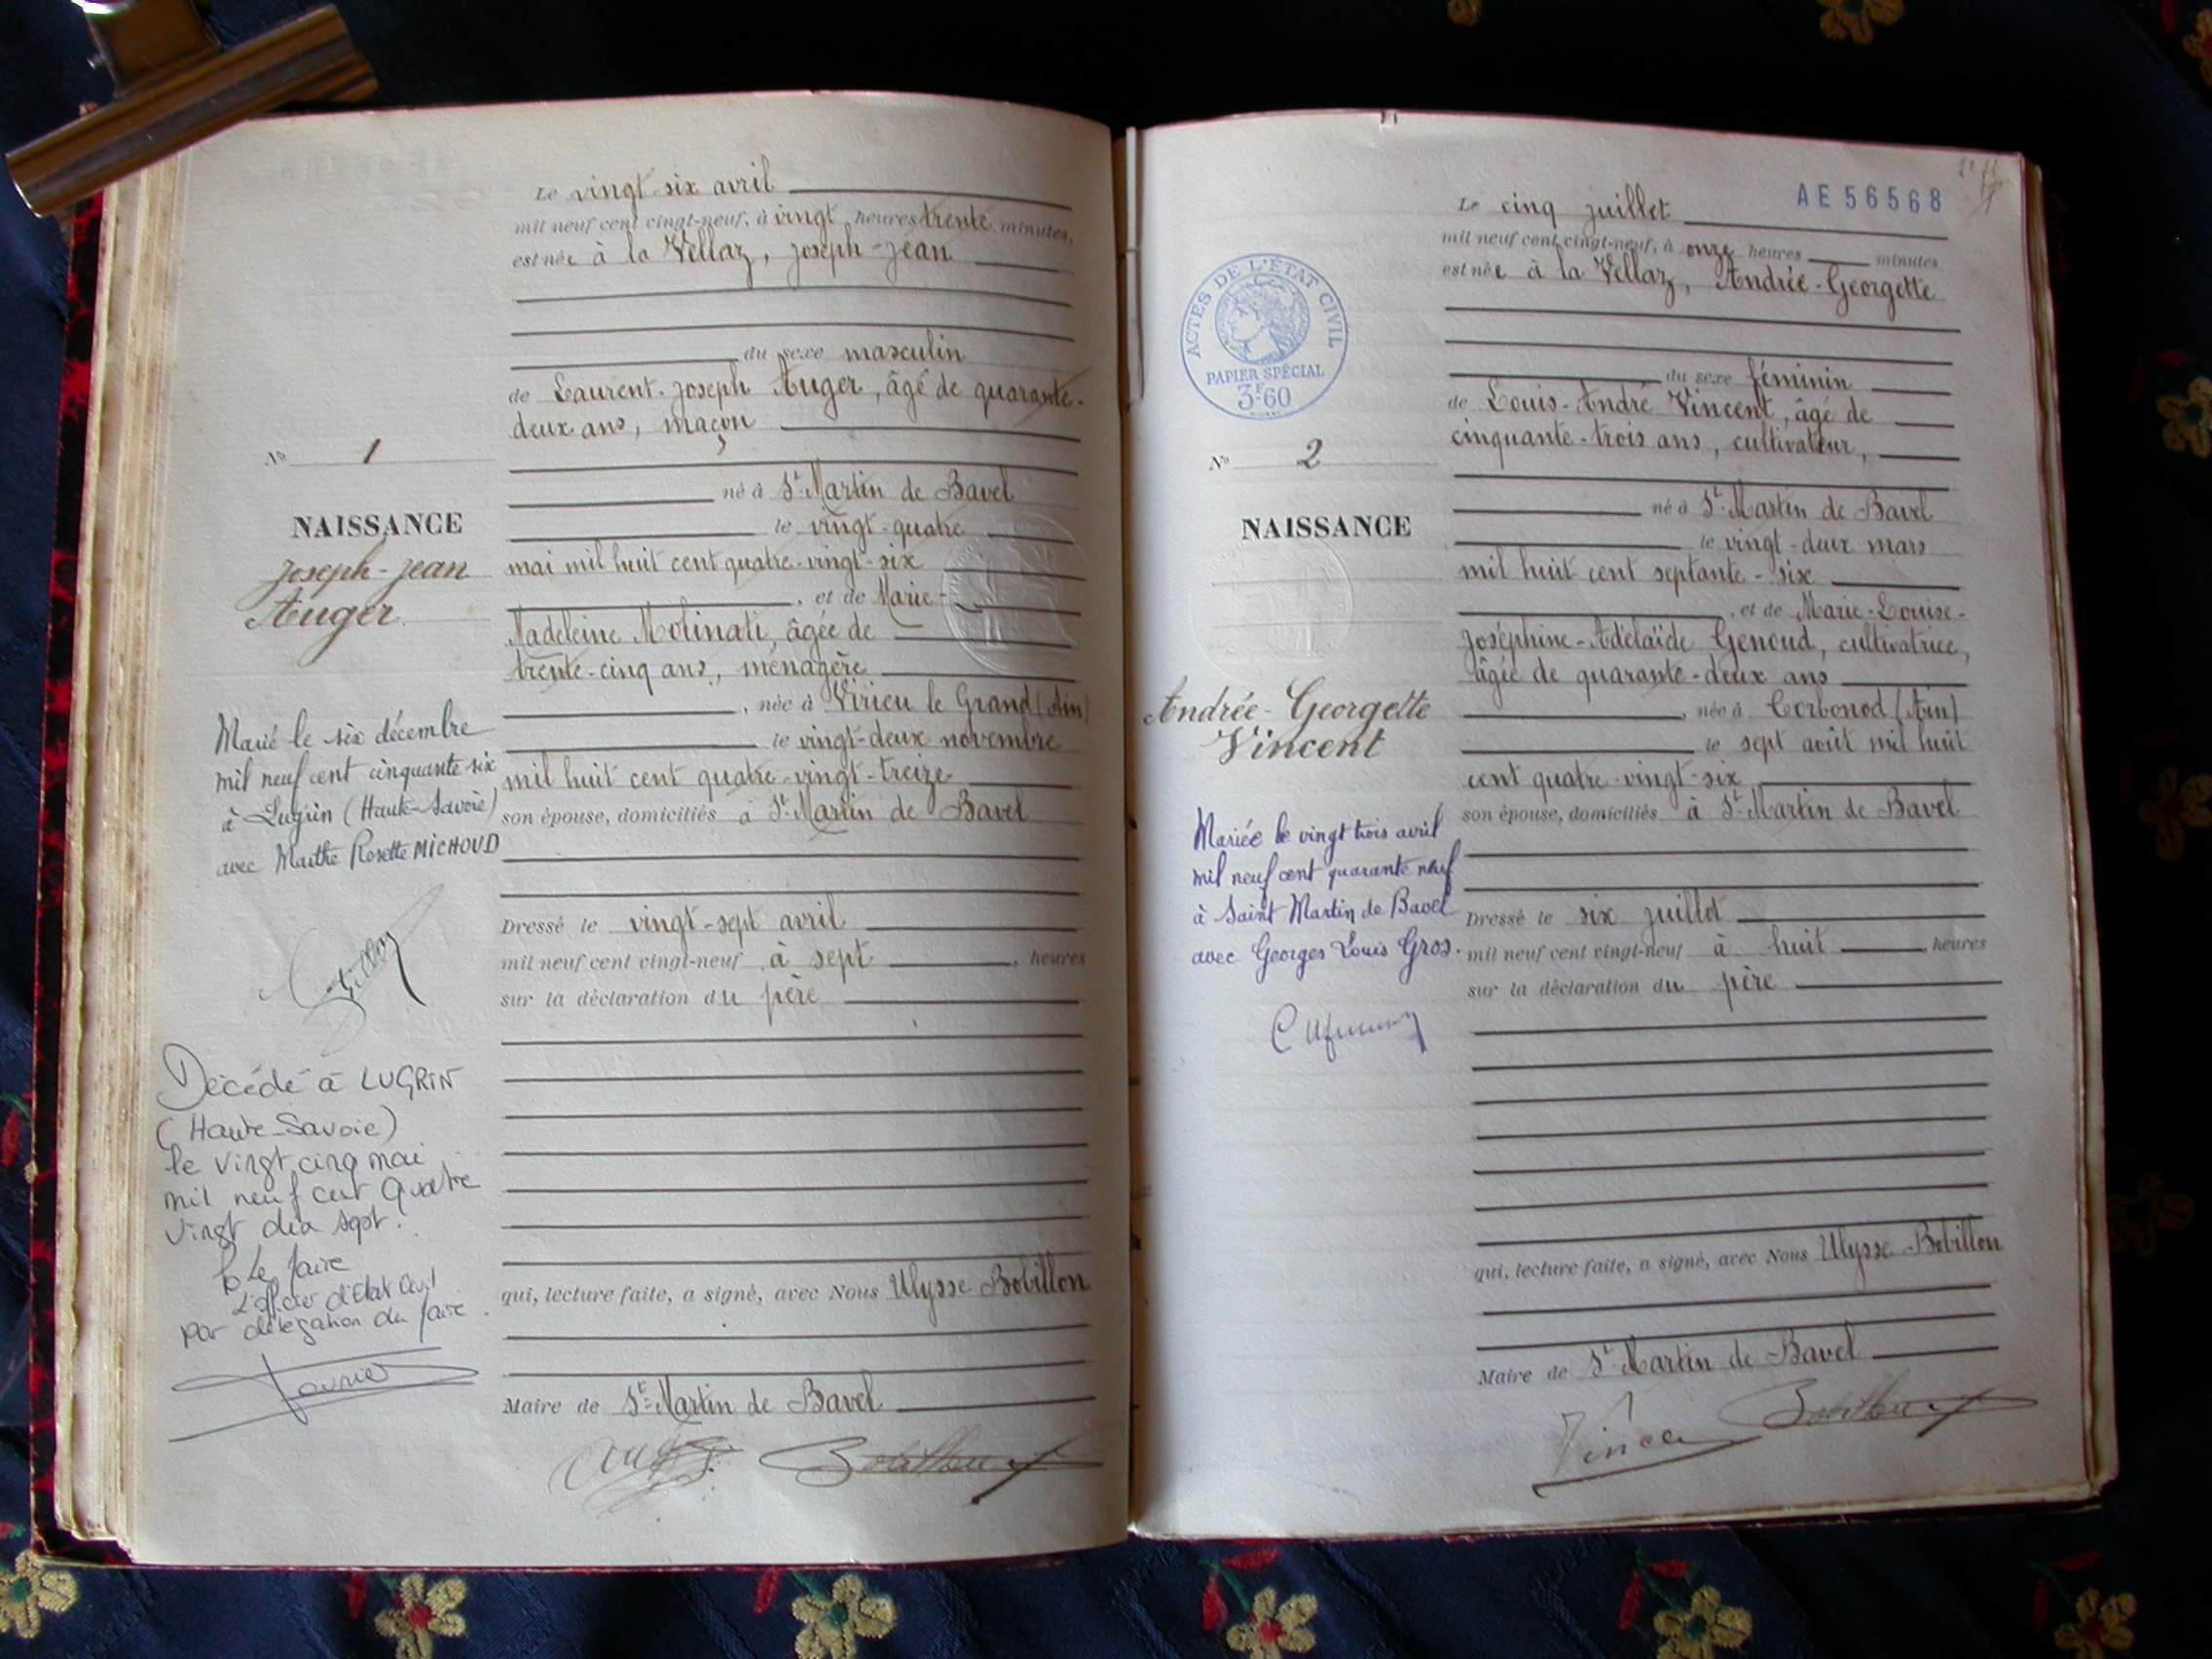 Le vingt-six avril
mil neuf cent vingt-neuf, à vingt heures trente minutes,
est née à la Vellaz, Joseph-Jean
du sexe masculin
de Laurent-Joseph Auger, âgé de quarante-
deux ans, maçon
né à St-Martin de Bavel
le vingt-quatre
mai mil huit cent quatre-vingt-six
, et de Marie-
Madeleine Molinati, âgée de
trente-cinq ans, ménagère
, née à Virieu le Grand (Ain)
le vingt-deux novembre
mil huit cent quatre-vingt-treize
son épouse, domiciliés à St-Martin de Bavel
Dressé le vingt-sept avril
mil neuf cent vingt-neuf à sept, heures
sur la déclaration du père
qui, lecture faite, a signé, avec Nous Ulysse Bobillon
Maire de St-Martin de Bavel
No 1
NAISSANCE
Joseph-Jean
Auger
Marié le six décembre
mil neuf cent cinquante six
à Lugrin (Haute-Savoie)
avec Marthe Rosette MICHOUD
Décédé à LUGRIN
(Haute-Savoie)
le vingt cinq mai
mil neuf cent quatre
vingt dix sept.
Le Maire
L'officier d'Etat Civil
par délégation du Maire.
AE 56568
Le cinq juillet
mil neuf cent vingt-neuf, à onze heures minutes
est née à la Vellaz, Andrée-Georgette
du sexe féminin
de Louis-André Vincent, âgé de
cinquante-trois ans, cultivateur,
né à St-Martin de Bavel
le vingt-deux mars
mil huit cent septante-six
, et de Marie-Louise-
Joséphine-Adélaïde Genoud, cultivatrice,
âgée de quarante-deux ans
, née à Corbonod (Ain)
le sept août mil huit
cent quatre-vingt-six
son épouse, domiciliés à St-Martin de Bavel
Dressé le six juillet
mil neuf cent vingt-neuf à huit, heures
sur la déclaration du père
qui, lecture faite, a signé, avec Nous Ulysse Bobillon
Maire de St-Martin de Bavel
ACTES DE L'ÉTAT CIVIL
PAPIER SPÉCIAL
3F60
No 2
NAISSANCE
Andrée-Georgette
Vincent
Mariée le vingt trois avril
mil neuf cent quarante neuf
à Saint Martin de Bavel
avec Georges Louis Gros.